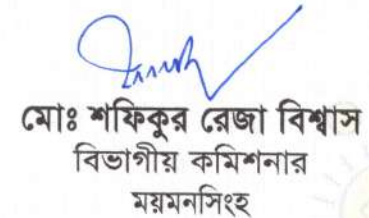 মোঃ শফিকুর রেজা বিশ্বাস
বিভাগীয় কমিশনার
ময়মনসিংহ